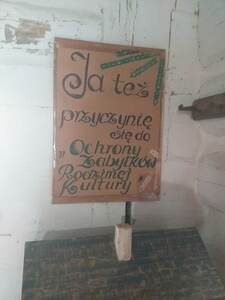 Ja też
przyczynię
się do
„Ochrony
Zabytków
Rodzimej
Kultury"